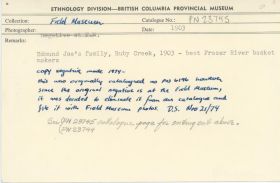 ETHNOLOGY DIVISION—BRITISH COLUMBIA PROVINCIAL MUSEUM
Collection: Field Museum Catalogue No.: PN 23745
Photographer: Date: 1903
Remarks: Negative at
Edmund Joe's Family, Ruby Creek, 1903 - best Frazer River basket
makers
copy negative made 1974-
this was originally catalogued as PN however
since the original negative is at the Field Museum,
it was decided to eliminate it from our catalogue and
file it with Field Museum photos. D.S. Nov 21/74
See PN 23745 catalogue page for crossed out above.
PN 23744